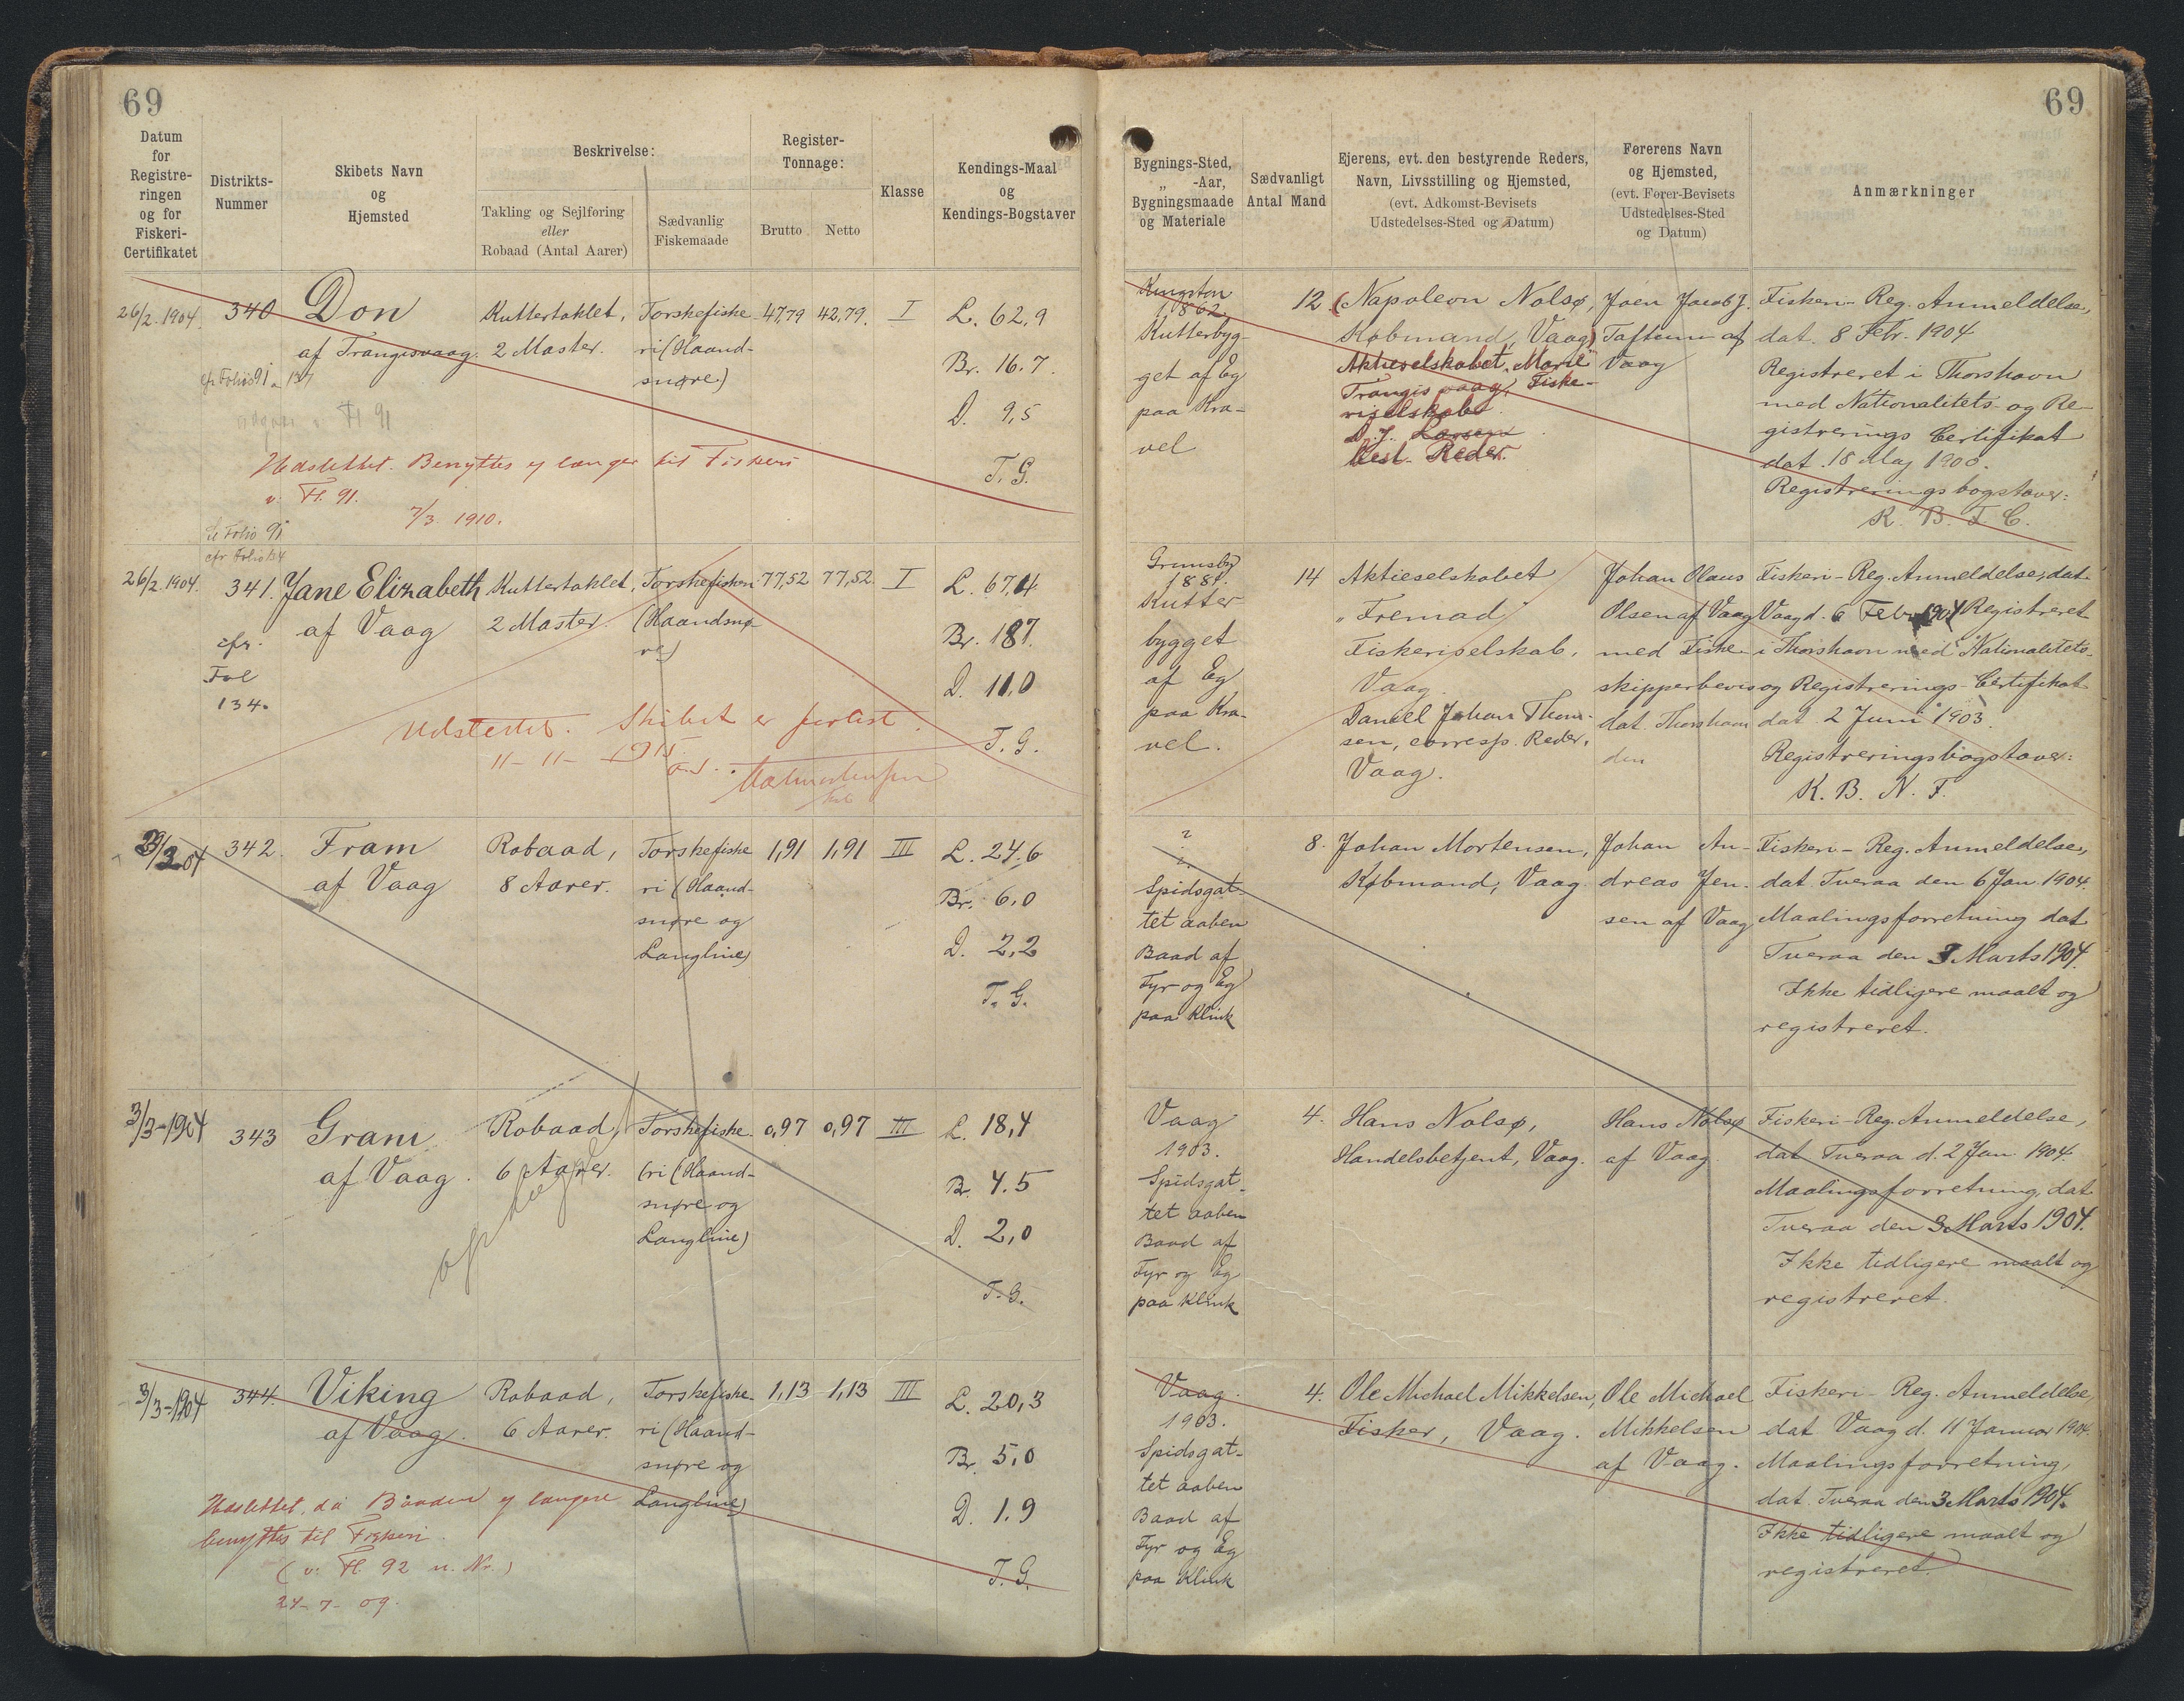 69
69
Datum
for
Registre-
ringen
og for
Fiskeri-
Certifikatet
Distrikts-
Nummer
Skibets Navn
og
Hjemsted
Beskrivelse:
Takling og Sejlføring
eller
Robaad (Antal Aarer)
Sædvanlig
Fiskemaade
Register-
Tonnage:
Brutto
Netto
Klasse
Kendings-Maal
og
Kendings-Bogstaver
Bygnings-Sted,
„ -Aar,
Bygningsmaade
og Materiale
Sædvanligt
Antal Mand
Ejerens, evt. den bestyrende Reders,
Navn, Livsstilling og Hjemsted,
(evt. Adkomst-Bevisets
Udstedelses-Sted og Datum)
Førerens Navn
og Hjemsted,
(evt. Fører-Bevisets
Udstedelses-Sted
og Datum)
Anmærkninger
26/2. 1904.
340
Don
af Trangisvaag.
cfr Folio 91 a 137
Fl 91
Kuttertaklet,
2 Master.
Torskefiske
ri (Haand-
snøre)
47,79
42,79.
I
L. 62,9
Br. 16.7.
D. 9,5
T. G.
Udslettet. Benyttes ej længer til Fiskeri
v. Fl. 91.
7/3 1910.
Kingston
1862.
Kutterbyg-
get af Eg
paa Kra-
vel
12.
(Napoleon Nolsø,
Købmand, Vaag)
Aktieselskabet „Marie"
Trangisvaag, Fiske-
riselskabe
D. J. Larsen
best. Reder.
Joen Jacob J.
Taftum af
Vaag
Fiskeri-Reg. Anmeldelse,
dat. 8 Febr. 1904
Registreret i Thorshavn
med Nationalitets- og Re-
gistrerings Certifikat
dat. 18 Maj 1900.
Registreringsbogstaver:
K. B. F. C.
Folio 91
cfr Folio 134
26/2. 1904.
341.
cfr.
Fol
134.
Jane Elizabeth
af Vaag
Kuttertaklet,
2 Master.
Torskefiskeri
(Haandsnø-
re)
77,52
77,52.
I
L. 67,4
Br. 187.
D. 11,0
T. G.
Udslettet. Skibet er forlist.
11-11-1915.
Grimsby
1881.
Kutter
bygget
af Eg
paa Kra-
vel.
14
Aktieselskabet
„Fremad"
Fiskeriselskab,
Vaag.
Daniel Johan Thom-
sen, corresp. Reder,
Vaag.
Johan Olaus
Olsen af Vaag
med Fiske-
skipperbevis
dat. Thorshavn
den
Fiskeri-Reg. Anmeldelse, dat.
Vaag d. 6 Febr 1904 Registreret
i Thorshavn med Nationalitets-
og Registrerings-Certifikat
dat. 2 Juni 1903.
Registreringsbogstaver:
K. B. N. F.
342.
Fram
af Vaag
Robaad,
8 Aarer.
Torskefiske
ri (Haand-
snøre og
Langline)
1,91
1,91
III
L. 24,6
Br. 6,0
D. 2,2
T. G.
?
?
Spidsgat-
tet aaben
Baad af
Fyr og Eg
paa Klink
8.
Johan Mortensen,
Købmand, Vaag.
Johan An-
dreas Jen-
sen af Vaag
Fiskeri-Reg. Anmeldelse,
dat. Tveraa den 6 Jan 1904.
Maalingsforretning dat
Tveraa den 3 Marts 1904.
Ikke tidligere maalt og
registreret.
3/3-1904
343
Gram
af Vaag.
Robaad,
6 Aarer.
Torskefiske-
ri (Haand-
snøre og
Langline)
0,97
0,97
III
L. 18,4
Br. 4.5
D. 2,0
T. G.
Vaag
1903.
Spidsgat-
tet aaben
Baad af
Fyr og Eg
paa Klink
4.
Hans Nolsø,
Handelsbetjent, Vaag.
Hans Nolsø
af Vaag.
Fiskeri-Reg. Anmeldelse,
dat. Tveraa d. 2 Jan. 1904.
Maalingsforretning, dat
Tveraa den 3 Marts 1904.
Ikke tidligere maalt og
registreret.
3/3-1904
344.
Viking
af Vaag.
Robaad,
6 Aarer.
Torskefiske-
ri (Haand-
snøre og
Langline)
1,13
1,13
III
L. 20,3
Br. 5,0
D. 1.9
T. G.
Udslettet, da Baaden ej længere
benyttes til Fiskeri
(v. Fl. 92 n. Nr.)
24-7-09.
Vaag.
1903.
Spidsgat-
tet aaben
Baad af
Fyr og Eg
paa Klink
4.
Ole Michael Mikkelsen,
Fisker, Vaag.
Ole Michael
Mikkelsen
af Vaag.
Fiskeri-Reg. Anmeldelse,
dat Vaag d. 11 Januar 1904.
Maalingsforretning,
dat. Tveraa den 3 Marts 1904.
Ikke tidligere maalt og
registreret.